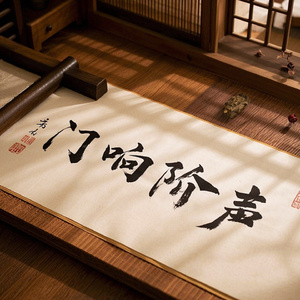 声阶响门